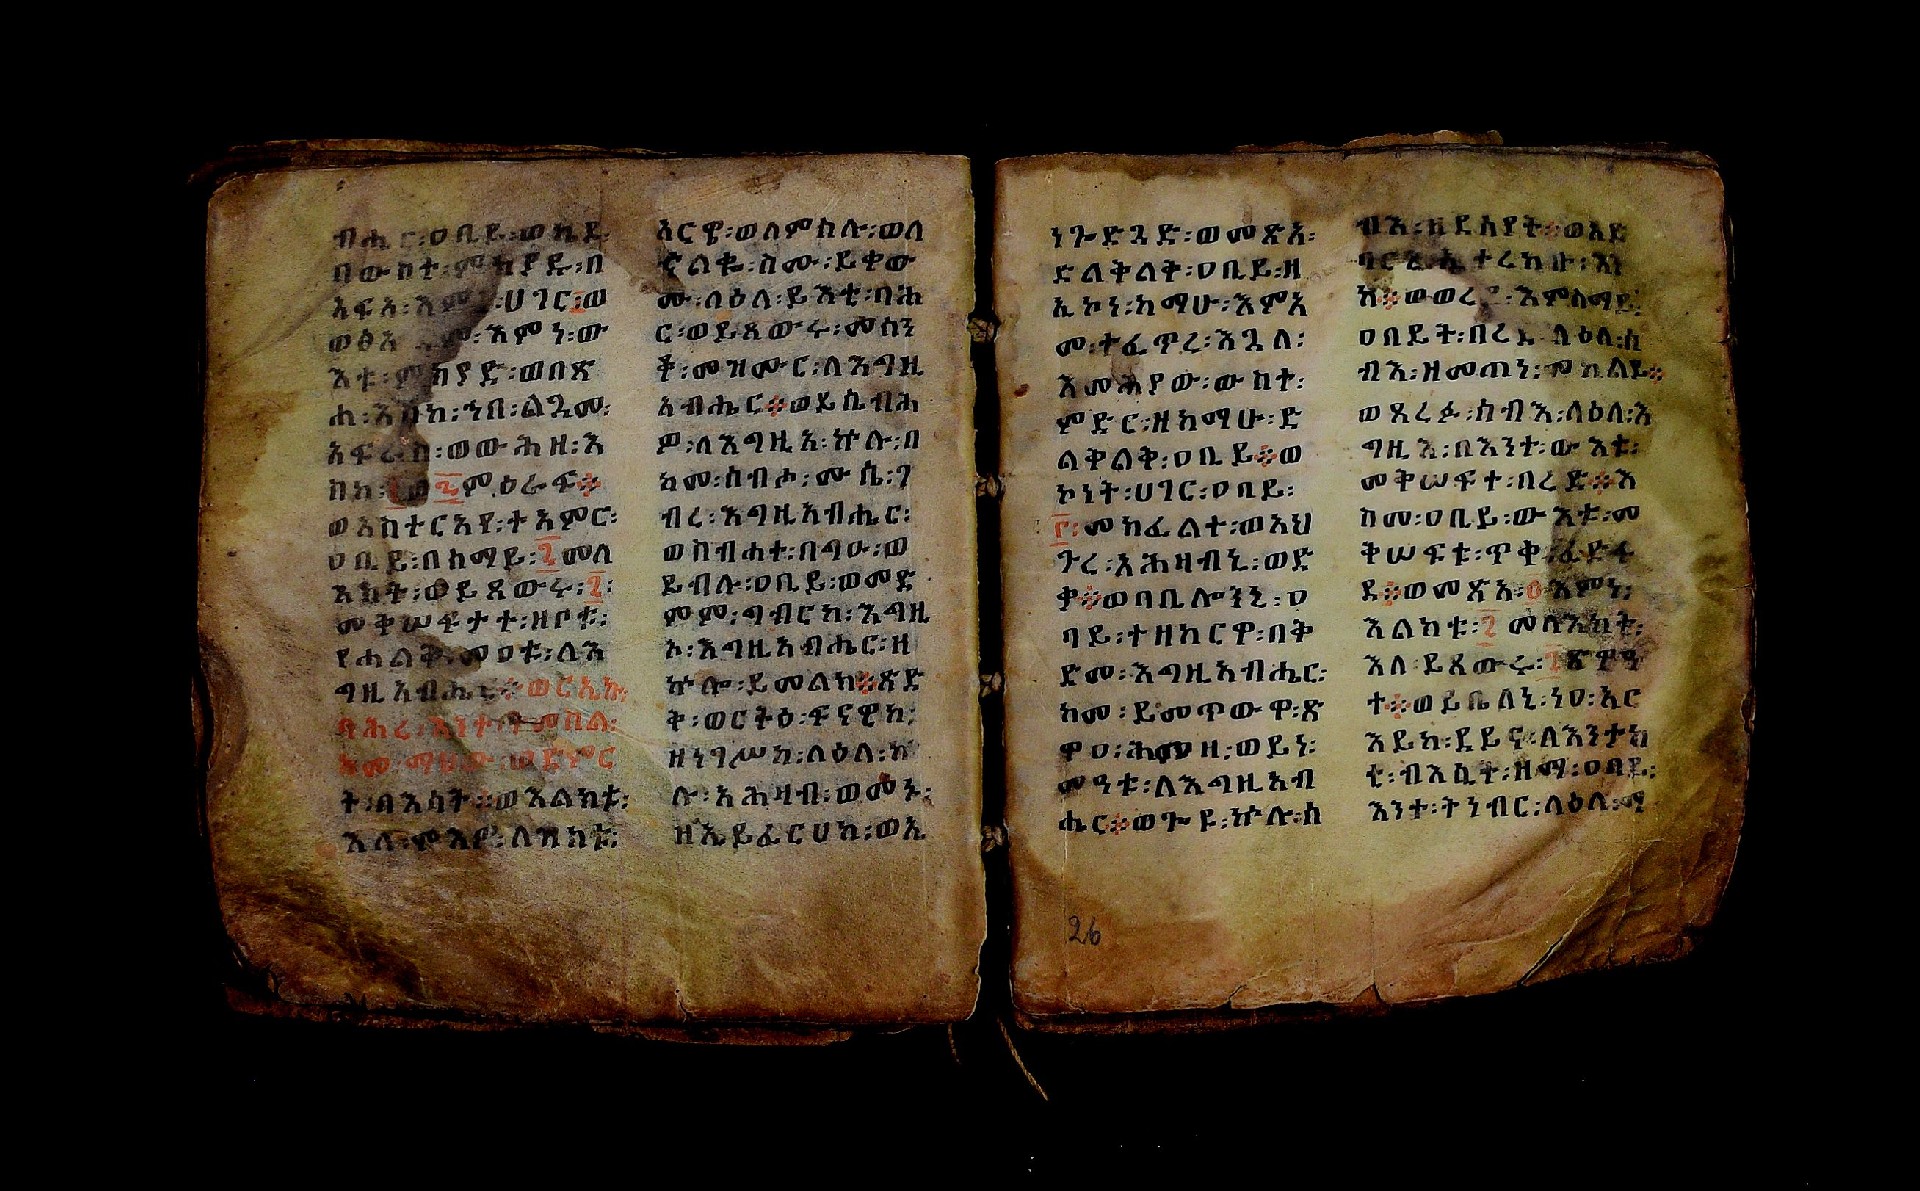 ብሔር፡ዐቢይ፡ወኬደ፡
በውስተ፡ምክያድ፡በ
አፍአ፡እም፡ሀገር፡ወ
ወፅአ፡ደም፡እምነ፡ው
እቱ፡ምክያድ፡ወበጽ
ሐ፡እስከ፡ኀበ፡ልጓመ፡
አፍራስ፡ወውሕዘ፡እ
ምዕራፍ፨
ወአስተርአየ፡ተአምር፡
ዐቢይ፡በሰማይ፡፯መላ
እክት፡ወይጸውሩ፡፯፡
መቅሠፍታተ፡ዘቦቱ፡
የሐልቅ፡መዐቱ፡ለእ
ግዚአብሔር፨ወርኢኩ፡
ባሕረ፡እንተ፡ትመስል፡
ከመ፡ማህው፡ወድምር
ት፡በእሳት፨ወእልክቱ፡
እለ፡ሞእዎ፡ለዝክቱ፡
አርዌ፡ወለምስሉ፡ወለ
ኍልቈ፡ስሙ፡ይቀው
ሙ፡ላዕለ፡ይእቲ፡ባሕ
ር፡ወይጸውሩ፡መሰን
ቅ፡መዝሙር፡ለእግዚ
አብሔር፨ወይሴብሕ
ዎ፡ለእግዚአ፡ኵሉ፡በ
ከመ፡ሰብሖ፡ሙሴ፡ገ
ብረ፡እግዚአብሔር፡
ወስብሐተ፡በግዑ፡ወ
ይብሉ፡ዐቢይ፡ወመድ
ምም፡ግብርከ፡እግዚ
ኦ፡እግዚአብሔር፡ዘ
ኵሎ፡ይመልክ፨ጽድ
ቅ፡ወርትዕ፡ፍናዊከ፡
ዘነገሥከ፡ላዕለ፡ኵ
ሉ፡አሕዛብ፡ወመኑ፡
ዘኢይፈርሀከ፡ወኢ
ነጐድጓድ፡ወመጽአ፡
ድልቅልቅ፡ዐቢይ፡ዘ
ኢኮነ፡ከማሁ፡እምአ
መ፡ተፈጥረ፡እጓለ፡
እመሕያው፡ውስተ፡
ምድር፡ዘከማሁ፡ድ
ልቅልቅ፡ዐቢይ፨ወ
ኮነት፡ሀገር፡ዐባይ፡
፫፡መክፈልተ፡ወአህ
ጉረ፡አሕዛብኒ፡ወድ
ቃ፨ወባቢሎንኒ፡ዐ
ባይ፡ተዘከርዋ፡በቅ
ድመ፡እግዚአብሔር፡
ከመ፡ይመጥውዋ፡ጽ
ዋዐ፡ሕምዘ፡ወይነ፡
መዓቱ፡ለእግዚአብ
ሔር፨ወጐዩ፡ኵሉ፡ሰ
ብእ፡ዘደሰያት፨ወአድ
ባርኒ፡ኢተረክቡ፡እን
ከ፨ወወረደ፡እምሰማይ፡
ዐበይት፡በረድ፡ላዕለ፡ሰ
ብእ፡ዘመጠነ፡መክልይ፨
ወጸረፉ፡ሰብእ፡ላዕለ፡እ
ግዚእ፡በእንተ፡ውእቱ፡
መቅሠፍተ፡በረድ፨እ
ስመ፡ዐቢይ፡ውእቱ፡መ
ቅሠፍቱ፡ጥቀ፡ፈድፋ
ደ፨ወመጽአ፡፩እምነ፡
እልክቱ፡፯መላእክት፡
እለ፡ይጸውሩ፡፯ጽዋዓ
ተ፨ወይቤለኒ፡ነዐ፡አር
እይከ፡ደይና፡ለእንታክ
ቲ፡ብእሲት፡ዘማ፡ዐባይ፡
እንተ፡ትነብር፡ላዕለ፡ማ
26